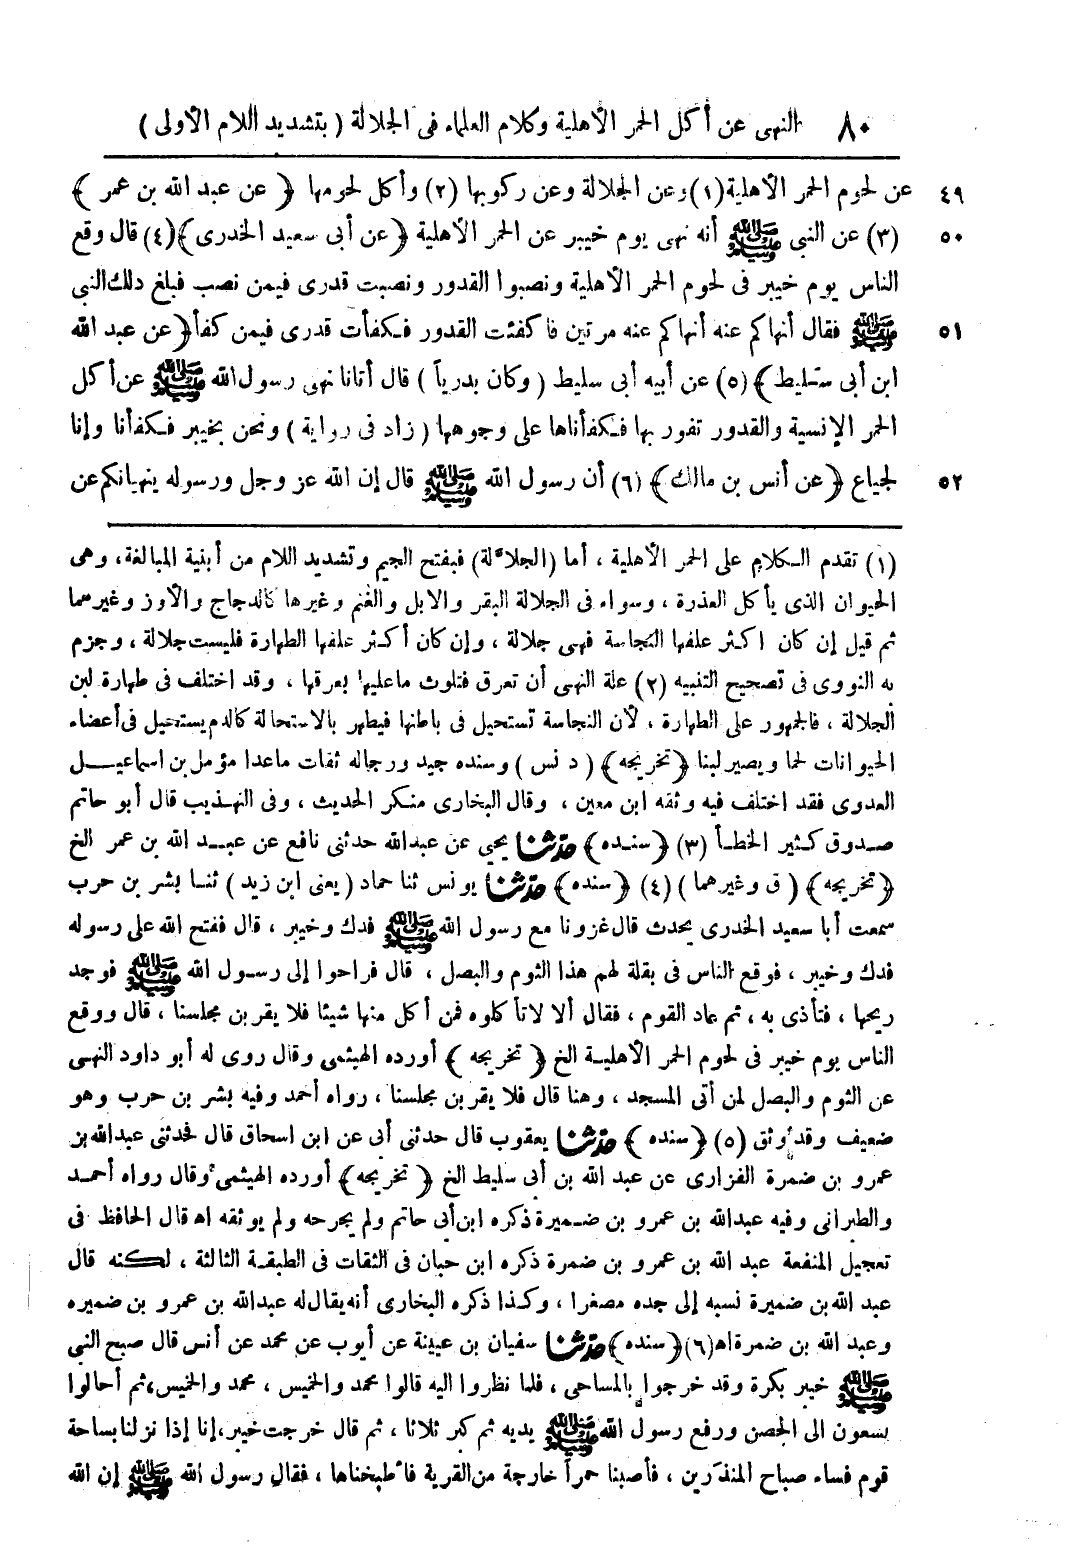 ٨٠ النهى عن أكل الحمر الأهلية وكلام العلماء فى الجلالة ( بتشديد اللام الأولى )
٤٩ عن لحوم الحمر الأهلية (١) وعن الجلالة وعن ركوبها (٢) وأكل لحومها ﴿ عن عبد الله بن عمر ﴾
٥٠ (٣) عن النبى ﷺ أنه نهى يوم خيبر عن الحمر الأهلية ﴿ عن أبى سعيد الخدرى ﴾ (٤) قال وقع
الناس يوم خيبر فى لحوم الحمر الأهلية ونصبوا القدور ونصبت قدرى فيمن نصب فبلغ ذلك النبى
٥١ ﷺ فقال أنهاكم عنه أنهاكم عنه مرتين فاكفئت القدور فكفأت قدرى فيمن كفأ ﴿ عن عبد الله
ابن أبى سليط ﴾ (٥) عن أبيه أبى سليط ( وكان بدرياً ) قال أتانا نهى رسول الله ﷺ عن أكل
الحمر الإنسية والقدور تفور بها فكفأناها على وجوهها ( زاد فى رواية ) ونحن بخيبر فكفأنا وإنا
٥٢ لجياع ﴿ عن أنس بن مالك ﴾ (٦) أن رسول الله ﷺ قال إن الله عز وجل ورسوله ينهيانكم عن
(١) تقدم الكلام على الحمر الأهلية ، أما (الجلالة) فبفتح الجيم وتشديد اللام من أبنية المبالغة، وهى
الحيوان الذى يأكل العذرة ، وسواء فى الجلالة البقر والابل والغنم وغيرها كالدجاج والأوز وغيرهما
ثم قيل إن كان اكثر علفها النجاسة فهى جلالة ، وإن كان أكثر علفها الطهارة فليست جلالة ، وجزم
به النووى فى تصحيح التنبيه (٢) علة النهى أن تعرق فتلوث ما عليها بعرقها ، وقد اختلف فى طهارة لبن
الجلالة ، فالجمهور على الطهارة ، لأن النجاسة تستحيل فى باطنها فيطهر بالاستحالة كالدم يستحيل فى أعضاء
الحيوانات لحما ويصير لبنا ﴿ تخريجه ﴾ ( د نس ) وسنده جيد ورجاله ثقات ماعدا مؤمل بن اسماعيل
العدوى فقد اختلف فيه وثقه ابن معين ، وقال البخارى منكر الحديث ، وفى التهذيب قال أبو حاتم
صدوق كثير الخطأ (٣) ﴿ سنده ﴾ حدثنا يحيى عن عبدالله حدثنى نافع عن عبد الله بن عمر الخ
﴿ تخريجه ﴾ ( ق وغيرهما ) (٤) ﴿ سنده ﴾ حدثنا يونس ثنا حماد ( يعنى ابن زيد ) ثنا بشر بن حرب
سمعت أبا سعيد الخدرى يحدث قال غزونا مع رسول الله ﷺ فدك وخيبر ، قال ففتح الله على رسوله
فدك وخيبر ، فوقع الناس فى بقلة لهم هذا الثوم والبصل ، قال فراحوا إلى رسول الله ﷺ فوجد
ريحها ، فتأذى به ، ثم عاد القوم ، فقال ألا لا تأكلوه فمن أكل منها شيئا فلا يقربن مجلسنا ، قال ووقع
الناس يوم خيبر فى لحوم الحمر الأهلية الخ ﴿ تخريجه ﴾ أورده الهيثمى وقال روى له أبو داود النهى
عن الثوم والبصل لمن أتى المسجد ، وهنا قال فلا يقربن مجلسنا ، رواه أحمد وفيه بشر بن حرب وهو
ضعيف وقد وثق (٥) ﴿ سنده ﴾ حدثنا يعقوب قال حدثنى أبى عن ابن اسحاق قال فحدثنى عبدالله بن
عمرو بن ضمرة الفزارى عن عبد الله بن أبى سليط الخ ﴿ تخريجه ﴾ أورده الهيثمى وقال رواه أحمد
والطبرانى وفيه عبدالله بن عمرو بن ضميرة ذكره ابن أبى حاتم ولم يجرحه ولم يوثقه اه قال الحافظ فى
تعجيل المنفعة عبد الله بن عمرو بن ضمرة ذكره ابن حبان فى الثقات فى الطبقة الثالثة ، لكنه قال
عبد الله بن ضميرة نسبه إلى جده مصغرا ، وكذا ذكره البخارى أنه يقال له عبدالله بن عمرو بن ضميره
وعبد الله بن ضمرة اه (٦) ﴿ سنده ﴾ حدثنا سفيان بن عيينة عن أيوب عن محمد عن أنس قال صبح النبى
ﷺ خيبر بكرة وقد خرجوا بالمساحى ، فلما نظروا اليه قالوا محمد والخميس ، محمد والخميس، ثم أحالوا
يسعون الى الحصن ورفع رسول الله ﷺ يديه ثم كبر ثلاثا ، ثم قال خرجت خيبر، إنا إذا نزلنا بساحة
قوم فساء صباح المنذرين ، فأصبنا حمراً خارجة من القرية فاطبخناها ، فقال رسول الله ﷺ إن الله